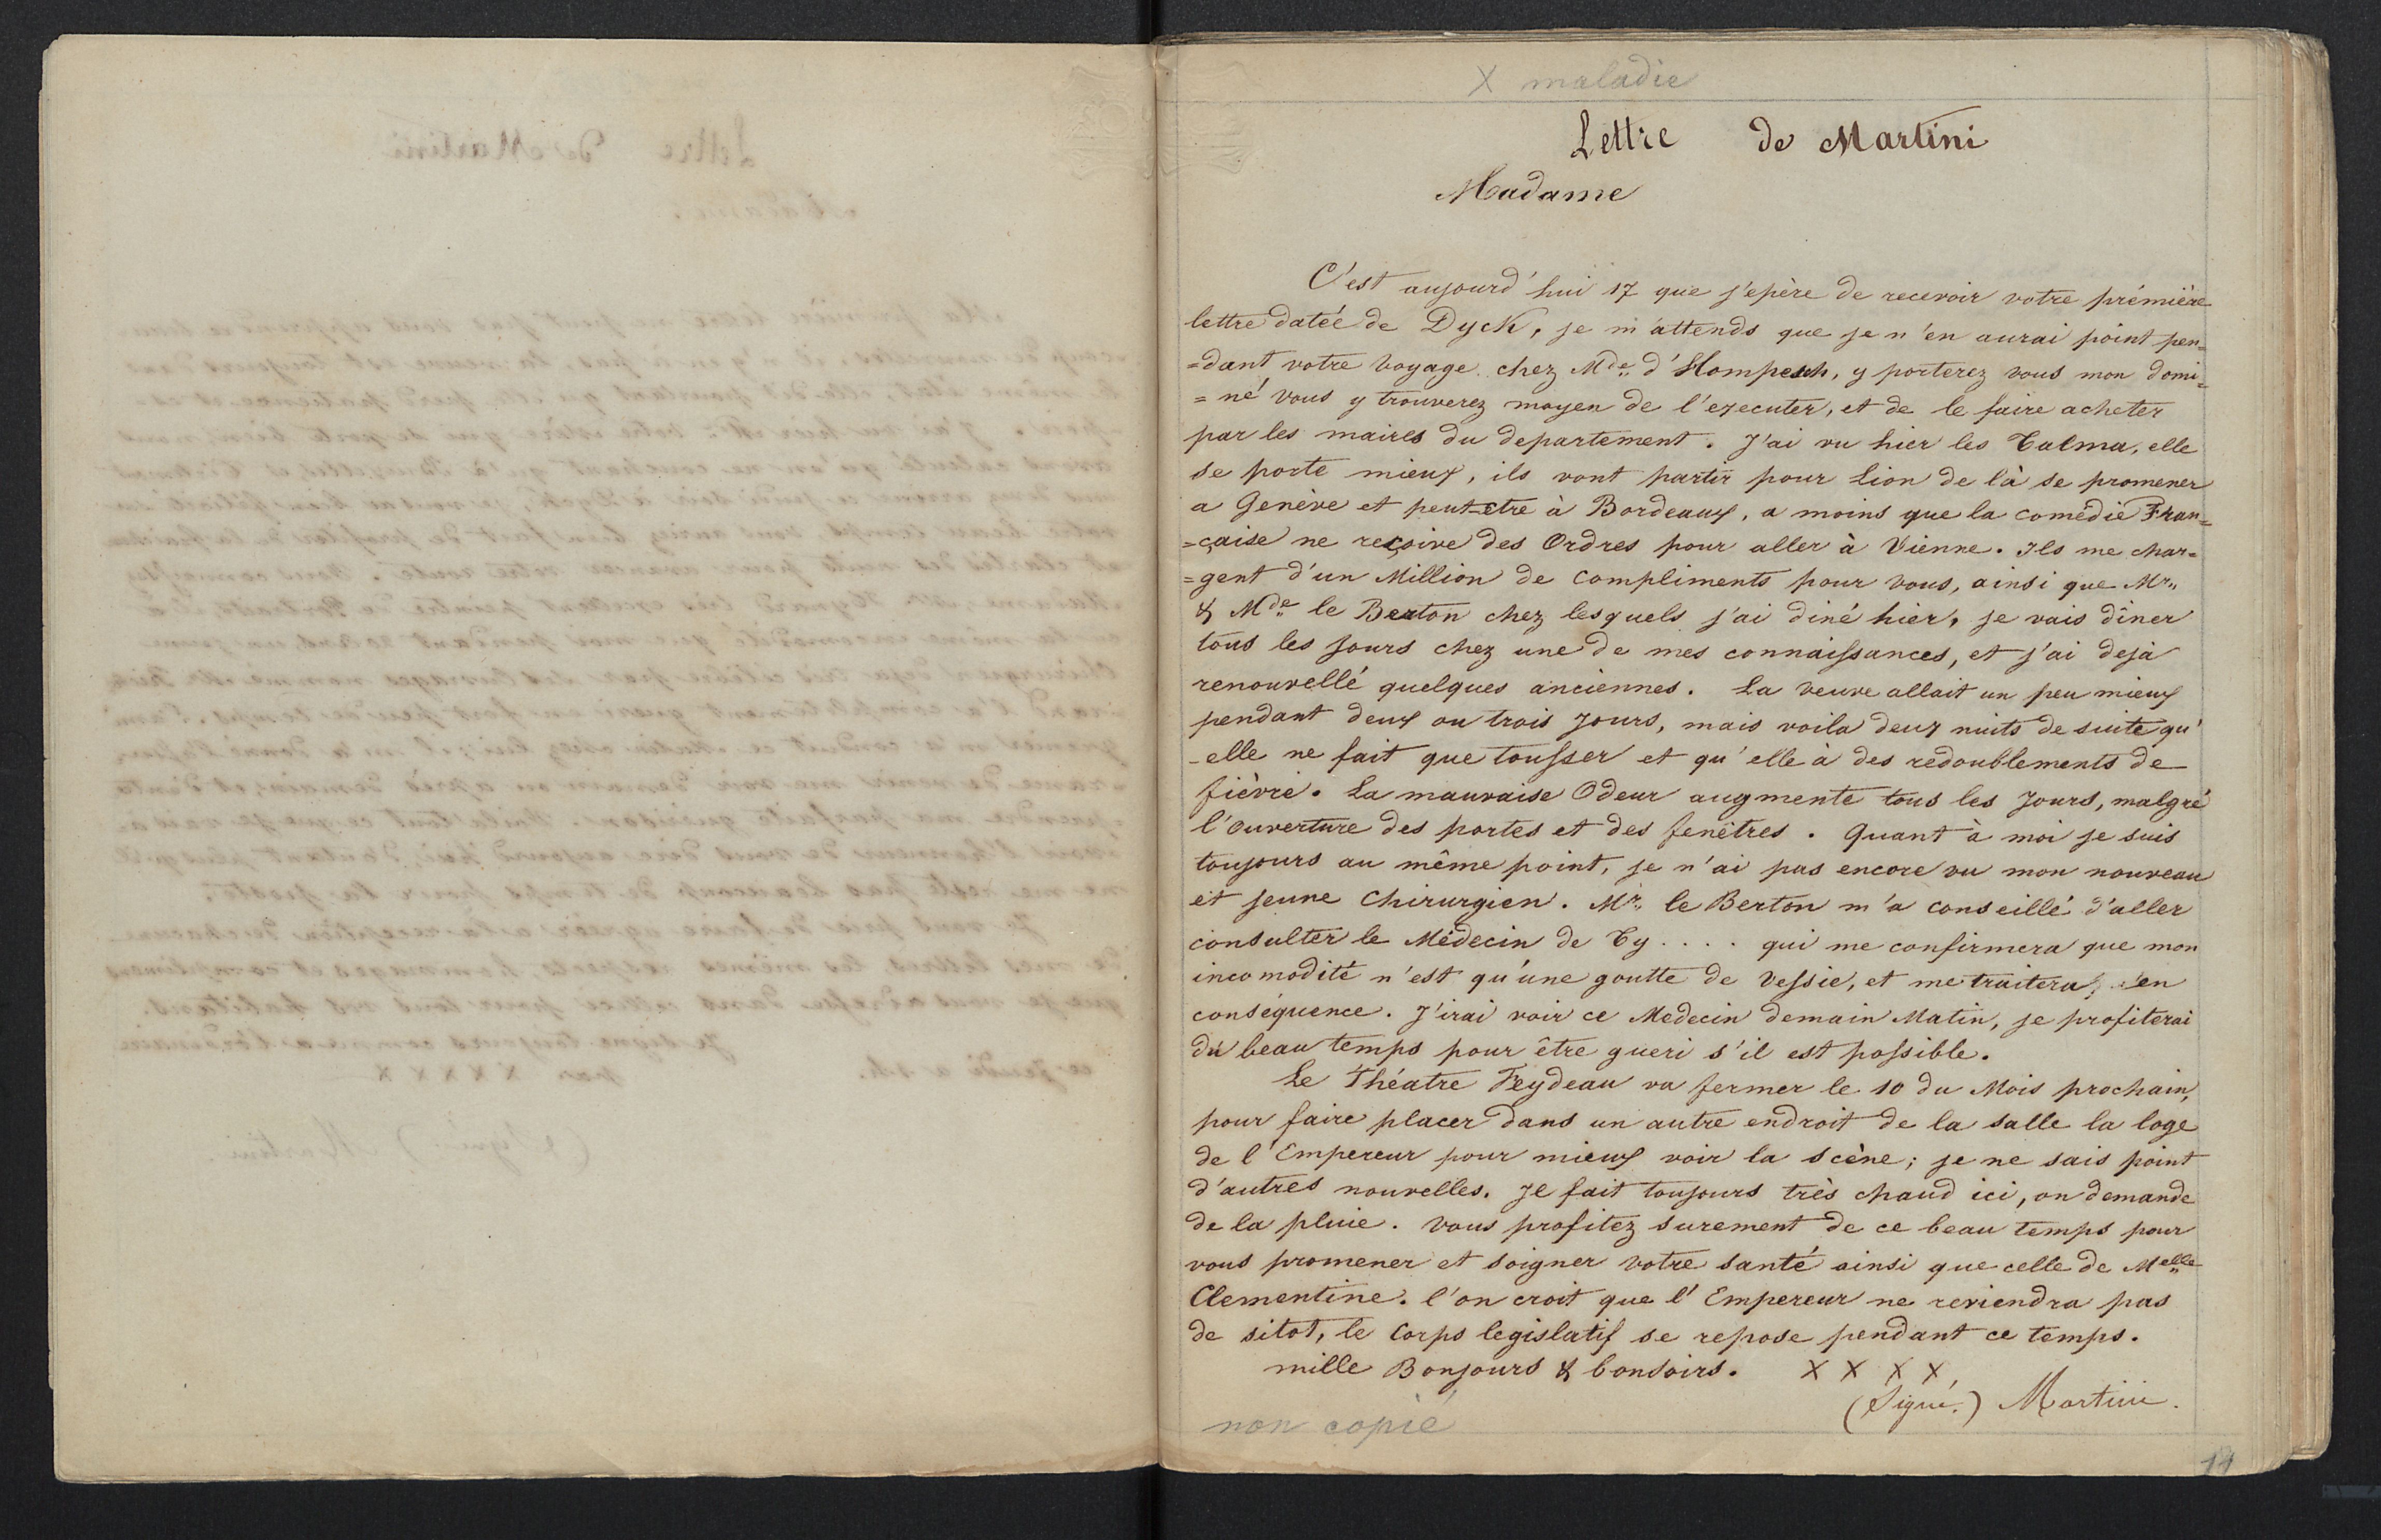 X maladie
Lettre de Martini
Madame
C'est aujourd'hui 17 que j'epère de recevoir votre prémière
lettre datéé de Dyck, je m'attends que je n'en aurai point pen=
=dant votre voyage chez Mde d'Hompesch, y porterez vous mon domi=
=né vous y trouverez moyen de l'executer, et de le faire acheter
par les maires du departement. J'ai vu hier les Talma, elle
se porte mieux, ils vont partir pour Lion de là se promener
a Genève et peut-etre à Bordeaux, a moins que la comédie Fran=
=çaise ne reçoive des Ordres pour aller à Vienne. Ils me char=
=gent d'un Million de compliments pour vous, ainsi que Mr
& Mde le Berton chez lesquels j'ai diné hier, je vais dîner
tous les jours chez une de mes connaissances, et j'ai dejà
renouvellé quelques anciennes. La veuve allait un peu mieux
pendant deux ou trois Jours, mais voila deux nuits de suite qu'
-elle ne fait que tousser et qu'elle à des redoublements de
fièvre. La mauvaise Odeur augmente tous les Jours, malgré
l'ouverture des portes et des fenêtres. Quant à moi je suis
toujours au même point, je n'ai pas encore vu mon nouveau
et jeune Chirurgien. Mr le Berton m'a conseillé d'aller
consulter le Médecin de Ty.... qui me confirmera que mon
incomodité n'est qu'une goutte de vessie, et me traitera, en
conséquence. J'irai voir ce Medecin demain Matin, je profiterai
du beau temps pour être gueri s'il est possible.
Le Théatre Feydeau va fermer le 10 du Mois prochain,
pour faire placer dans un autre endroit de la salle la loge
de l'Empereur pour mieux voir la scène; je ne sais point
d'autres nouvelles. Il fait toujours très chaud ici, on demande
de la pluie. vous profitez surement de ce beau temps pour
vous promener et soigner votre santé ainsi que celle de Melle
Clementine. l'on croit que l'Empereur ne reviendra pas
de sitot, le Corps legislatif se repose pendant ce temps.
mille Bonjours & bonsoirs. X X X X,
(Signé.) Martini.
non copié